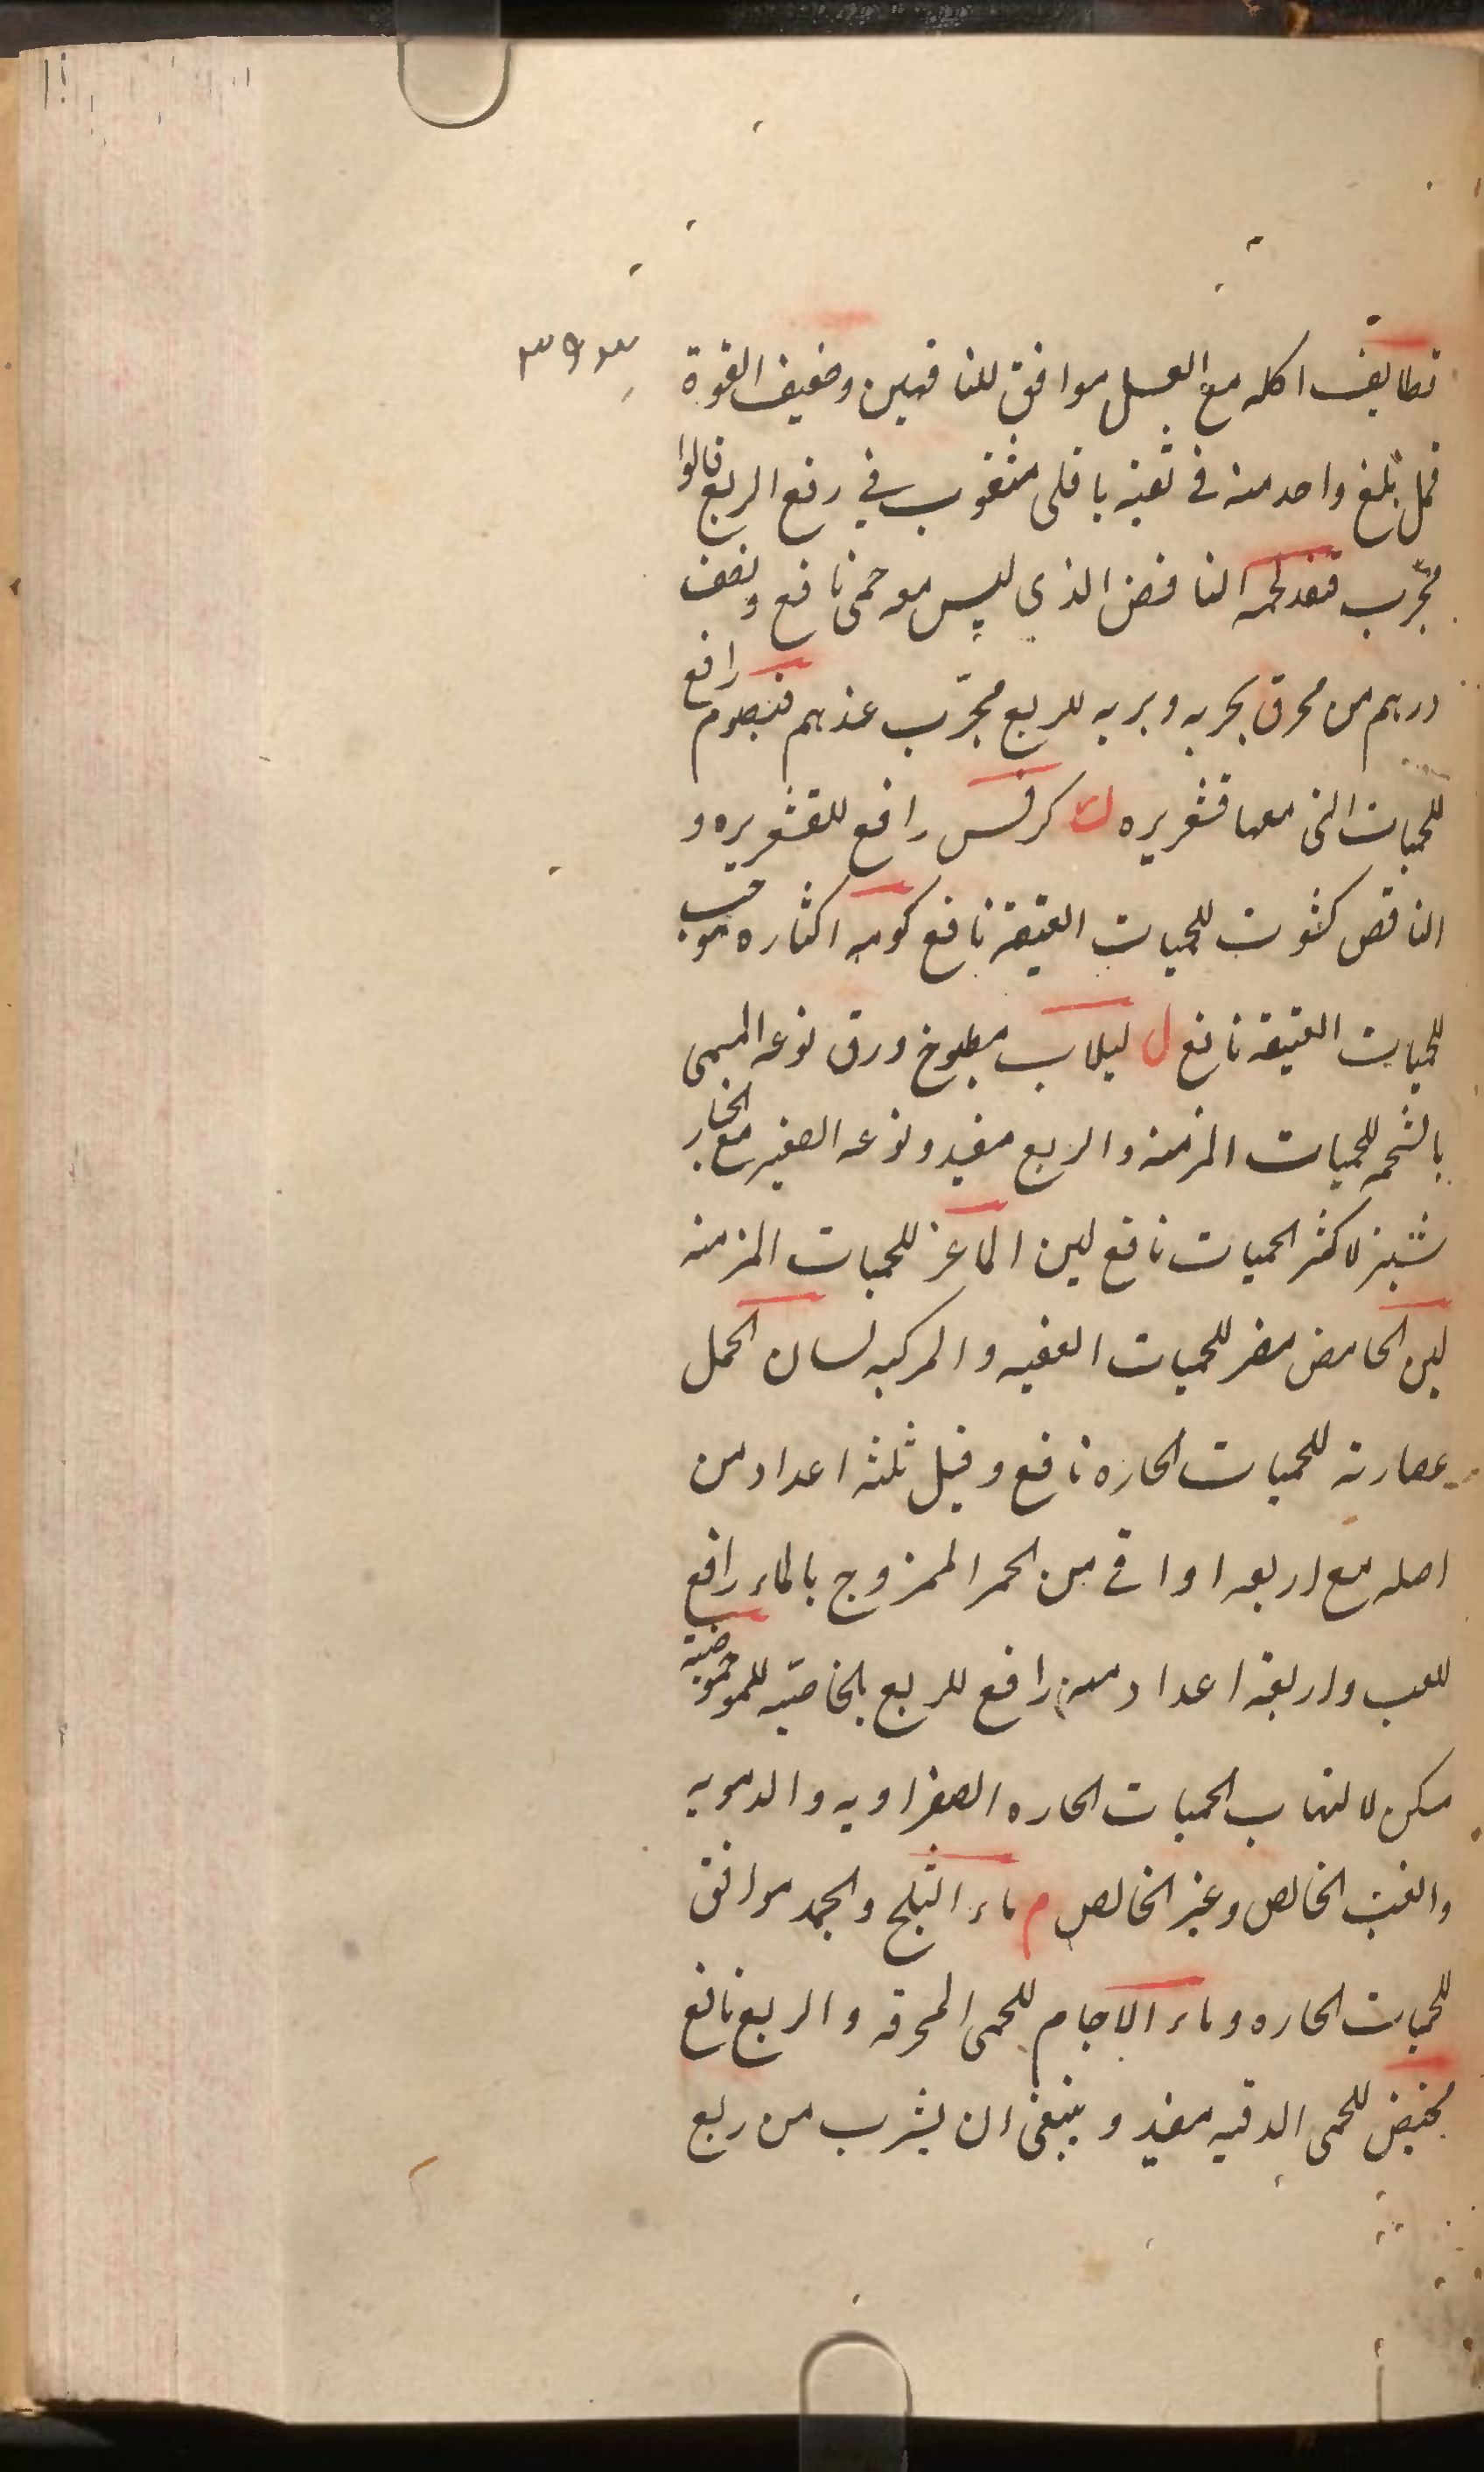 ٣٩٣
قطايف اكله مع العسل موافق للناقهين وضعيف القوة
قمل بلغ واحد منه في ثقبة باقلى مثقوب في رفع الربع قالوا
مجرّب قنفد لحمه النافض الذي ليس معه حمى نافع ونصف
درهم من محرق بحريه وبريه للربع مجرّب عندهم قيصوم رافع
للحميات التى معها قشعريره ك كرفس رافع للقشعريره و
النافض كشوت للحميات العتيقة نافع كومه اكثاره موجب
للحميات العتيقه نافع ل لبلاب مطبوخ ورق نوعه المسمى
بالشحمه للحميات المزمنه والربع مفيد ونوعه الصغير مع الخيار
شنبر لاكثر الحميات نافع لبن الماعز للحميات المزمنه
لبن الحامض مضر للحميات العفنيه والمركبه لسان الحمل
عصارته للحميات الحاره نافع وقيل ثلثه اعداد من
اصله مع اربعه اواقى من الخمر الممزوج بالماء رافع
للغب واربعة اعداد منه رافع للربع بالخاصيّه لليمو حموضته
مسكن لالتهاب الحميات الحاره الصفراويه والدمويه
والغب الخالص وغير الخالص م ماء الثلج والجمد موافق
للحميات الحاره وماء الاجام للحمى المحرقه والربع نافع
مخيض للحمى الدقيه مفيد وينبغى ان يشرب من ربع